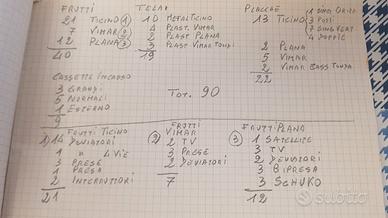 FRUTTI
21 TICINO (1)
7 VIMAR (2)
12 PLANA (3)
40
TELAI
10 METALTICINO
4 PLAST. VIMAR
2 PLAST PLANA
3 PLAST VIMAR TONDI
19
PLACCHE
13 TICINO
2 PLANA
5 VIMAR
2 VIMAR BASS TONDA
22
3 POSI
4 DOPPIE
CASSETTE INCASSO
3 GRANDI
5 NORMALI
1 ESTERNO
9
TOT. 90
1) FRUTTI TICINO
14 DEVIATORI
1 " 4 VIE
3 PRESE
1 PRESA
2 INTERRUTTORI
21
2) FRUTTI VIMAR
2 TV
3 PRESE
2 DEVIATORI
7
3) FRUTTI PLANA
1 SATELLITE
3 TV
2 DEVIATORI
3 BIPRESA
3 SCHUKO
12
subito.it